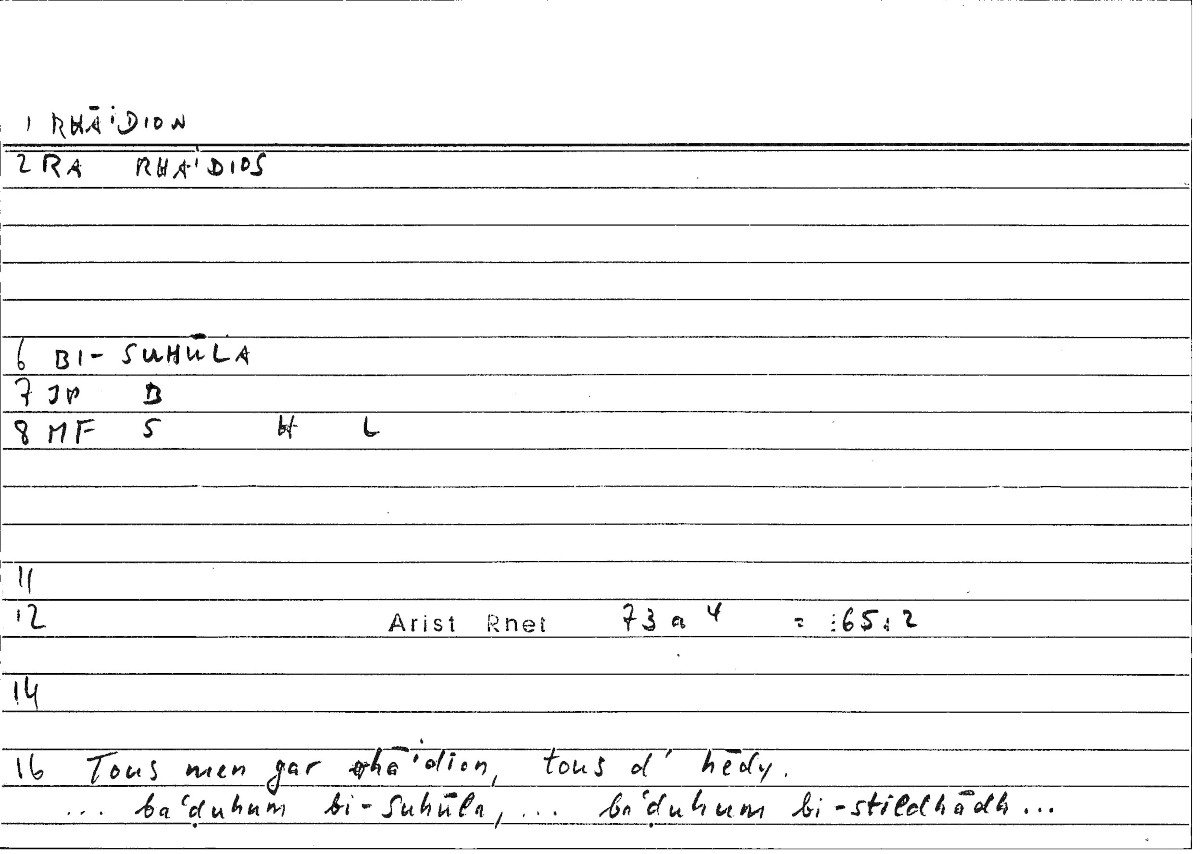 1 RHĀ'DION
2 RA RHA'DIOS
6 BI- SUHŪLA
7 JP B
8 MF S H L
11
12 Arist Rhet 73 a 4 = :65:2
14
16 Tous men gar rhā'dion, tous d' hēdy.
... ba'ḍuhum bi-suhūla, ... ba'ḍuhum bi-stildhādh ...